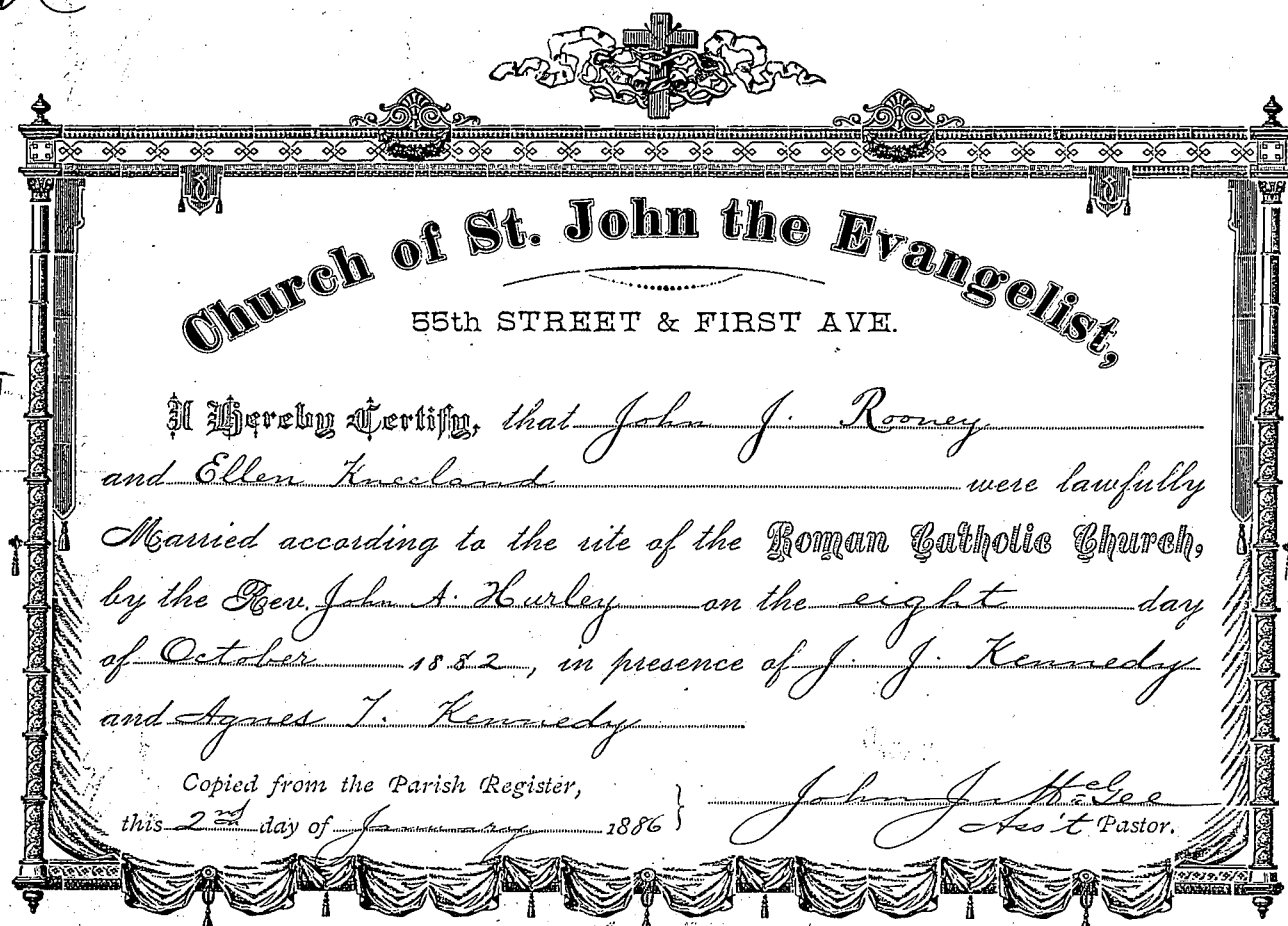 Church of St. John the Evangelist,
55th STREET & FIRST AVE.
I Hereby Certify, that John J. Rooney
and Ellen Kneeland were lawfully
Married according to the rite of the Roman Catholic Church,
by the Rev. John A. Hurley on the eight day
of October 1882, in presence of J. J. Kennedy
and Agnes T. Kennedy
Copied from the Parish Register,
this 2nd day of January 1886
John J. McGee
Ass't Pastor.